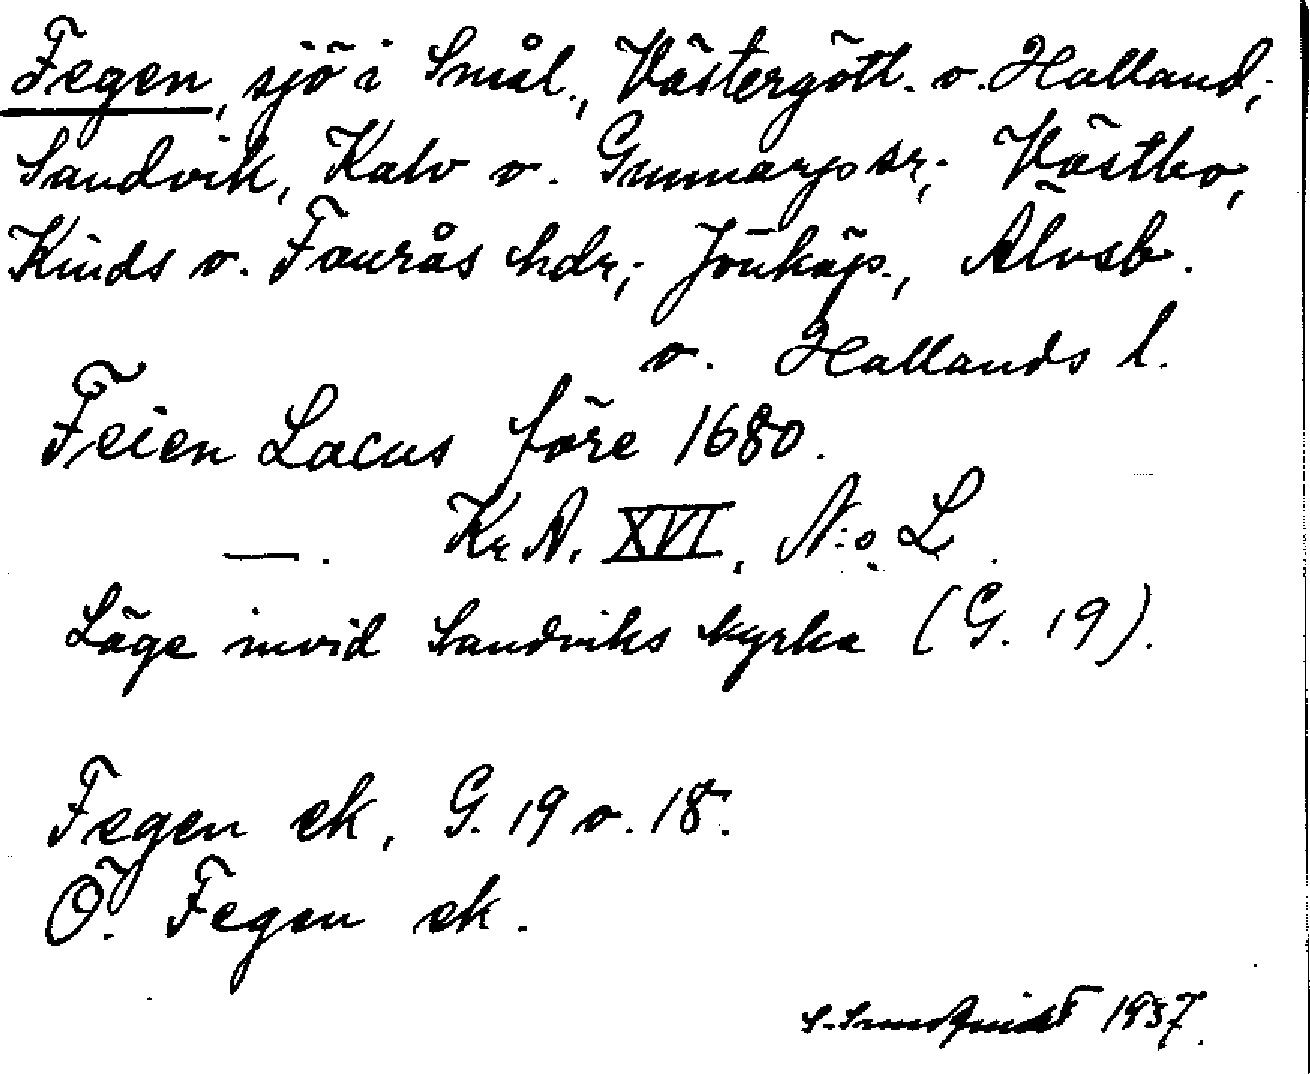 Fegen, sjö i Smål., Västergötl. o. Halland;
Sandvik, Kalv o. Gunnarps sr; Västbo,
Kinds o. Faurås hdr; Jönköp., Älvsb.
o. Hallands l.
Feien Lacus före 1680.
—. Kr. A. XVI, N:o L.
Läge invid Sandviks kyrka (G. 19).
Fegen ek, G. 19 o. 18.
Ö. Fegen ek.
1937.